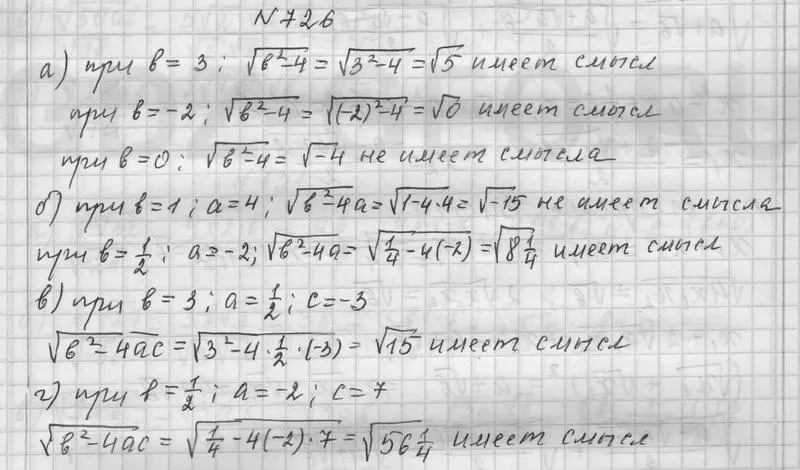 N726
а) при в = 3; √в²-4 = √3²-4 = √5 имеет смысл
при в = -2; √в²-4 = √(-2)²-4 = √0 имеет смысл
при в = 0; √в²-4 = √-4 не имеет смысла
б) при в = 1; а = 4; √в²-4а = √1-4·4 = √-15 не имеет смысла
при в = 1/2; а = -2; √в²-4а = √1/4-4(-2) = √8 1/4 имеет смысл
в) при в = 3; а = 1/2; с = -3
√в²-4ас = √3²-4·1/2·(-3) = √15 имеет смысл
г) при в = 1/2; а = -2; с = 7
√в²-4ас = √1/4-4(-2)·7 = √56 1/4 имеет смысл